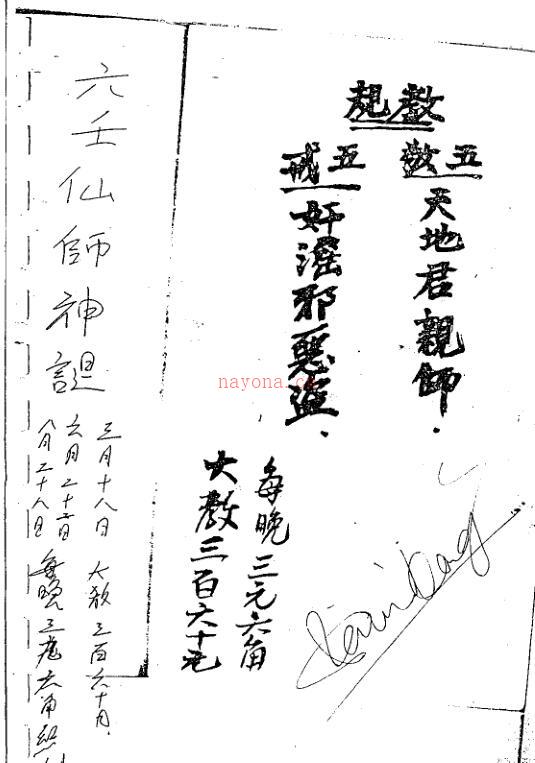 教規
五敬
天地君親師.
五戒
奸淫邪惡盜.
每晚三元六角
大教三百六十元
六壬仙師神誕
三月十八日
六月二十二日
八月二十八日
大教三百六十元
每晚三元六角
nayona.c